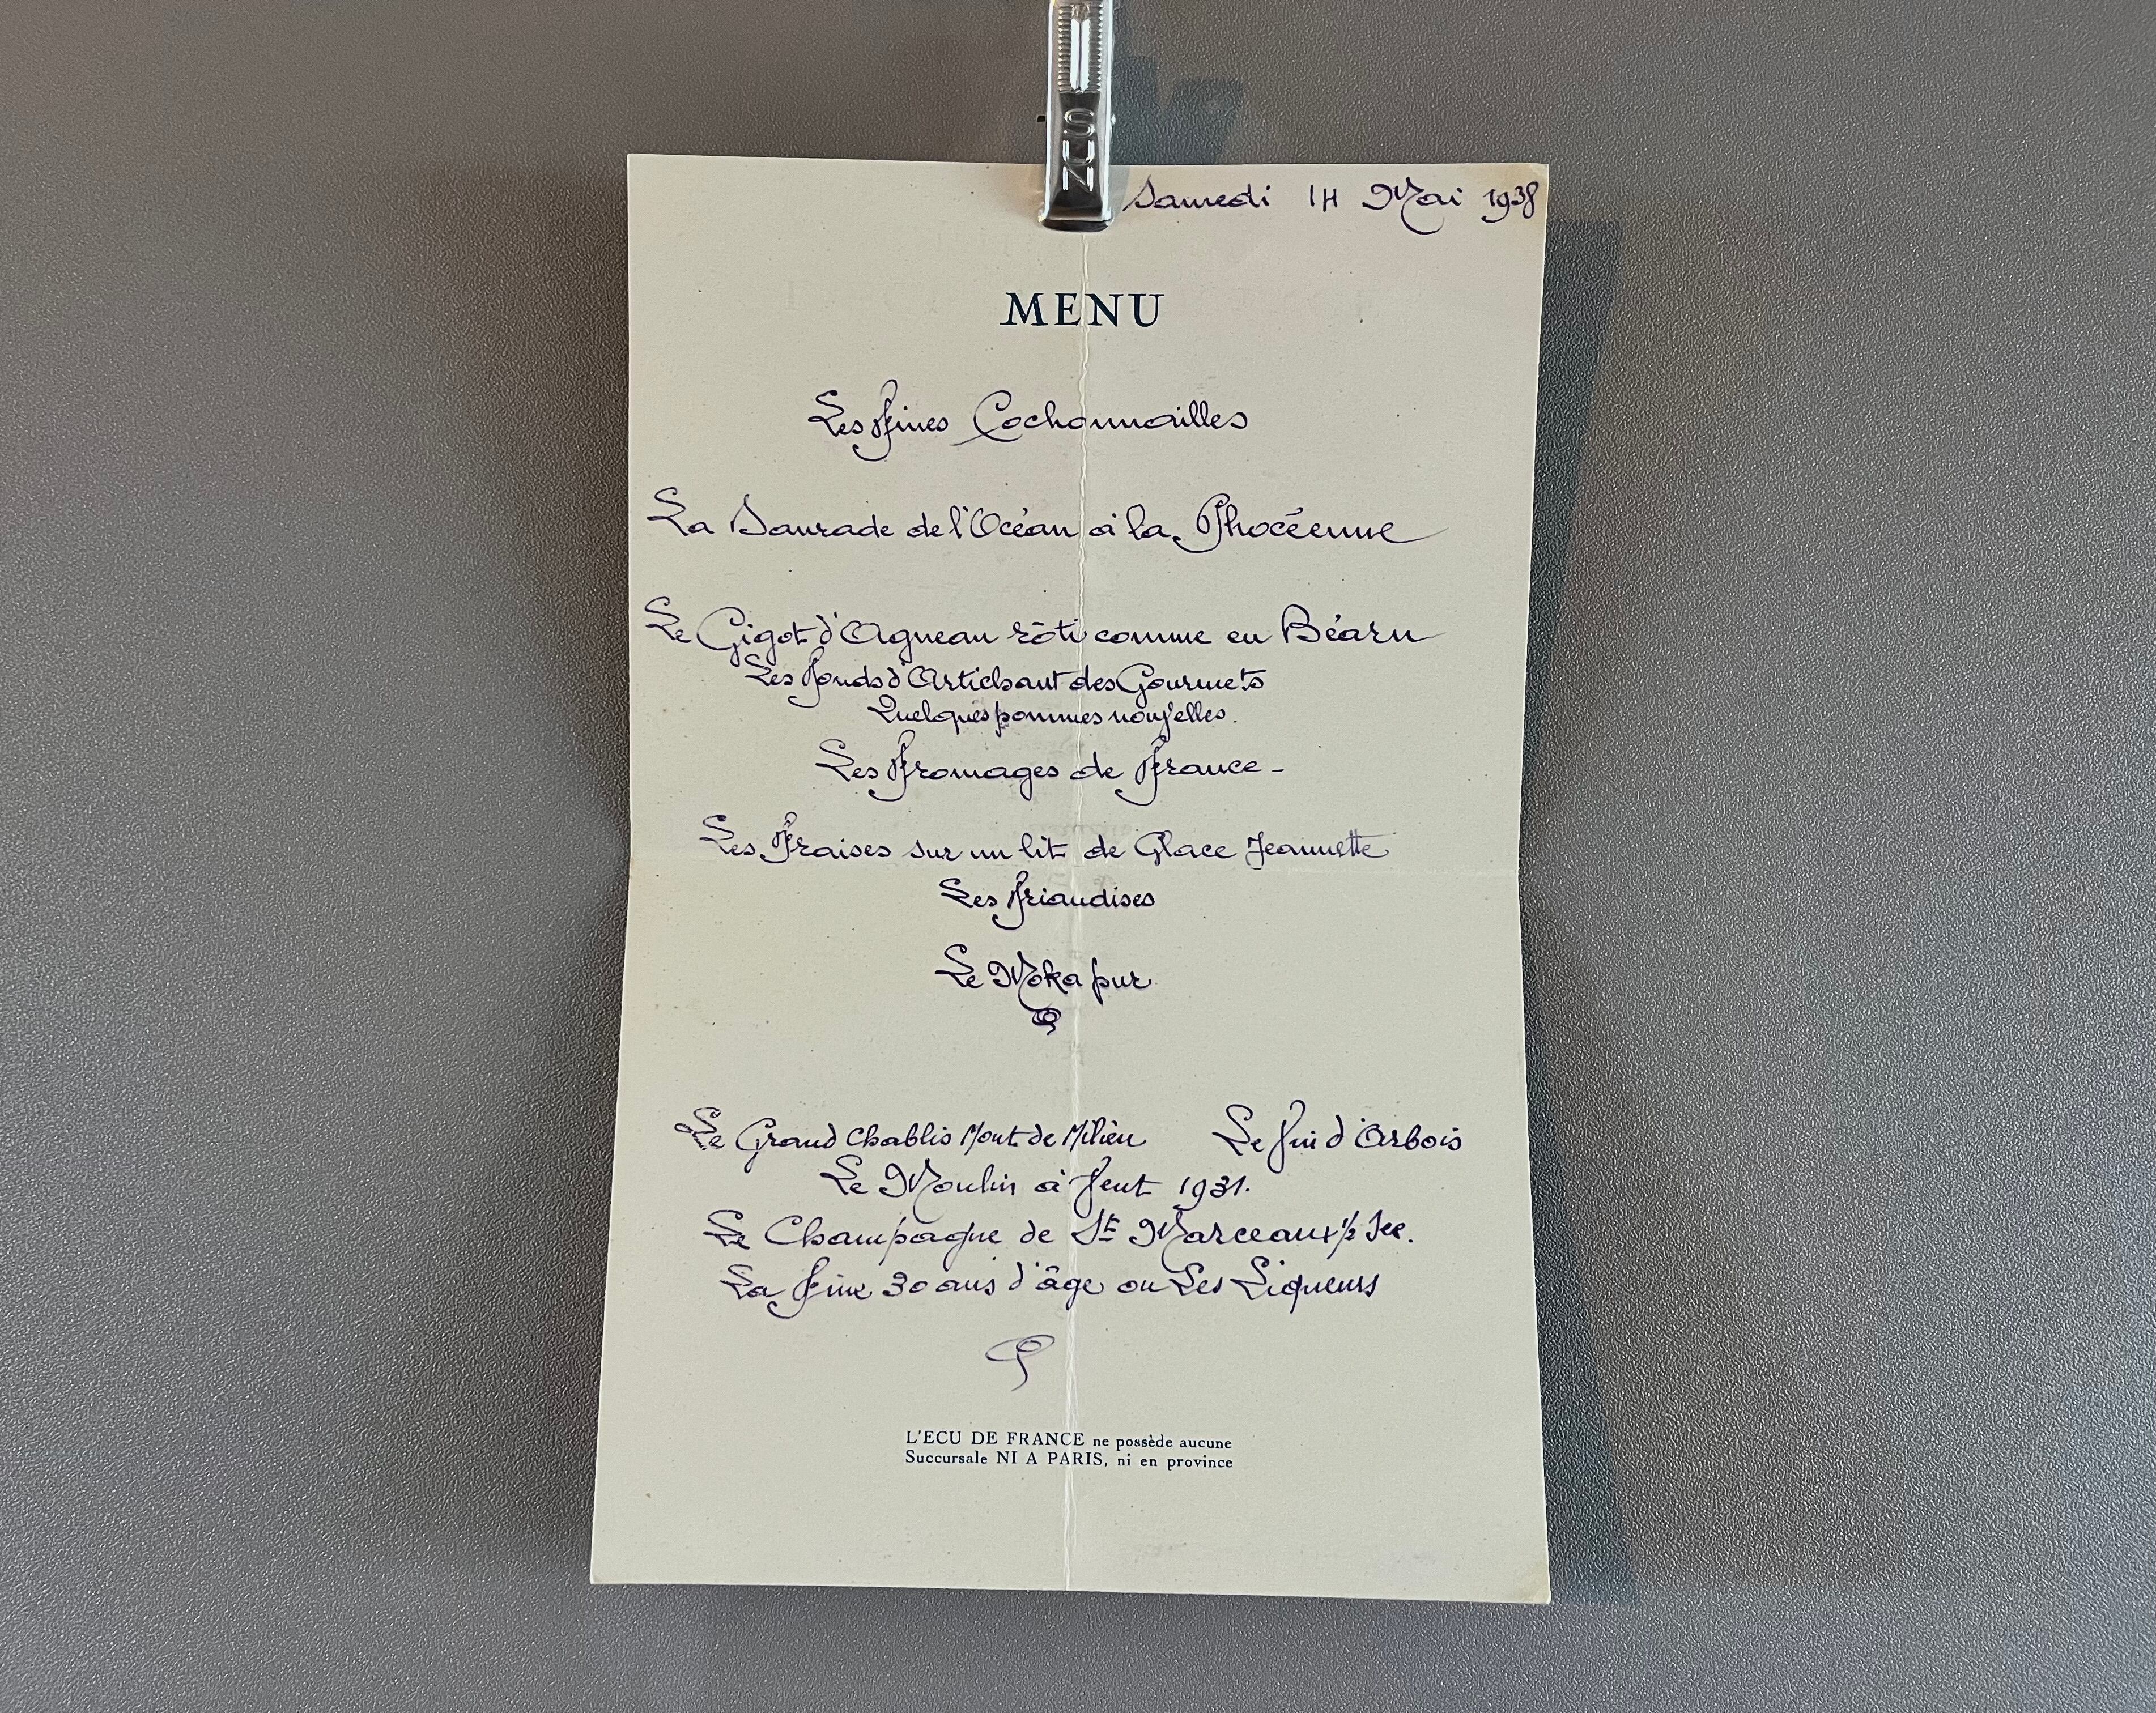 SUN
Samedi 14 Mai 1938
MENU
Les Fines Cochonnailles
La Daurade de l'Océan à la Phocéenne
Le Gigot d'Agneau rôti comme en Béarn
Les Fonds d'Artichaut des Gourmets
Quelques pommes nouvelles.
Les Fromages de France -
Les Fraises sur un lit de Glace Jeannette
Les Friandises
Le Moka pur
Le Grand Chablis Mont de Milieu Le Vin d'Arbois
Le Moulin à Vent 1931.
Le Champagne de St Marceaux 1/2 Sec.
La Fine 30 ans d'âge ou Les Liqueurs
L'ECU DE FRANCE ne possède aucune
Succursale NI A PARIS, ni en province